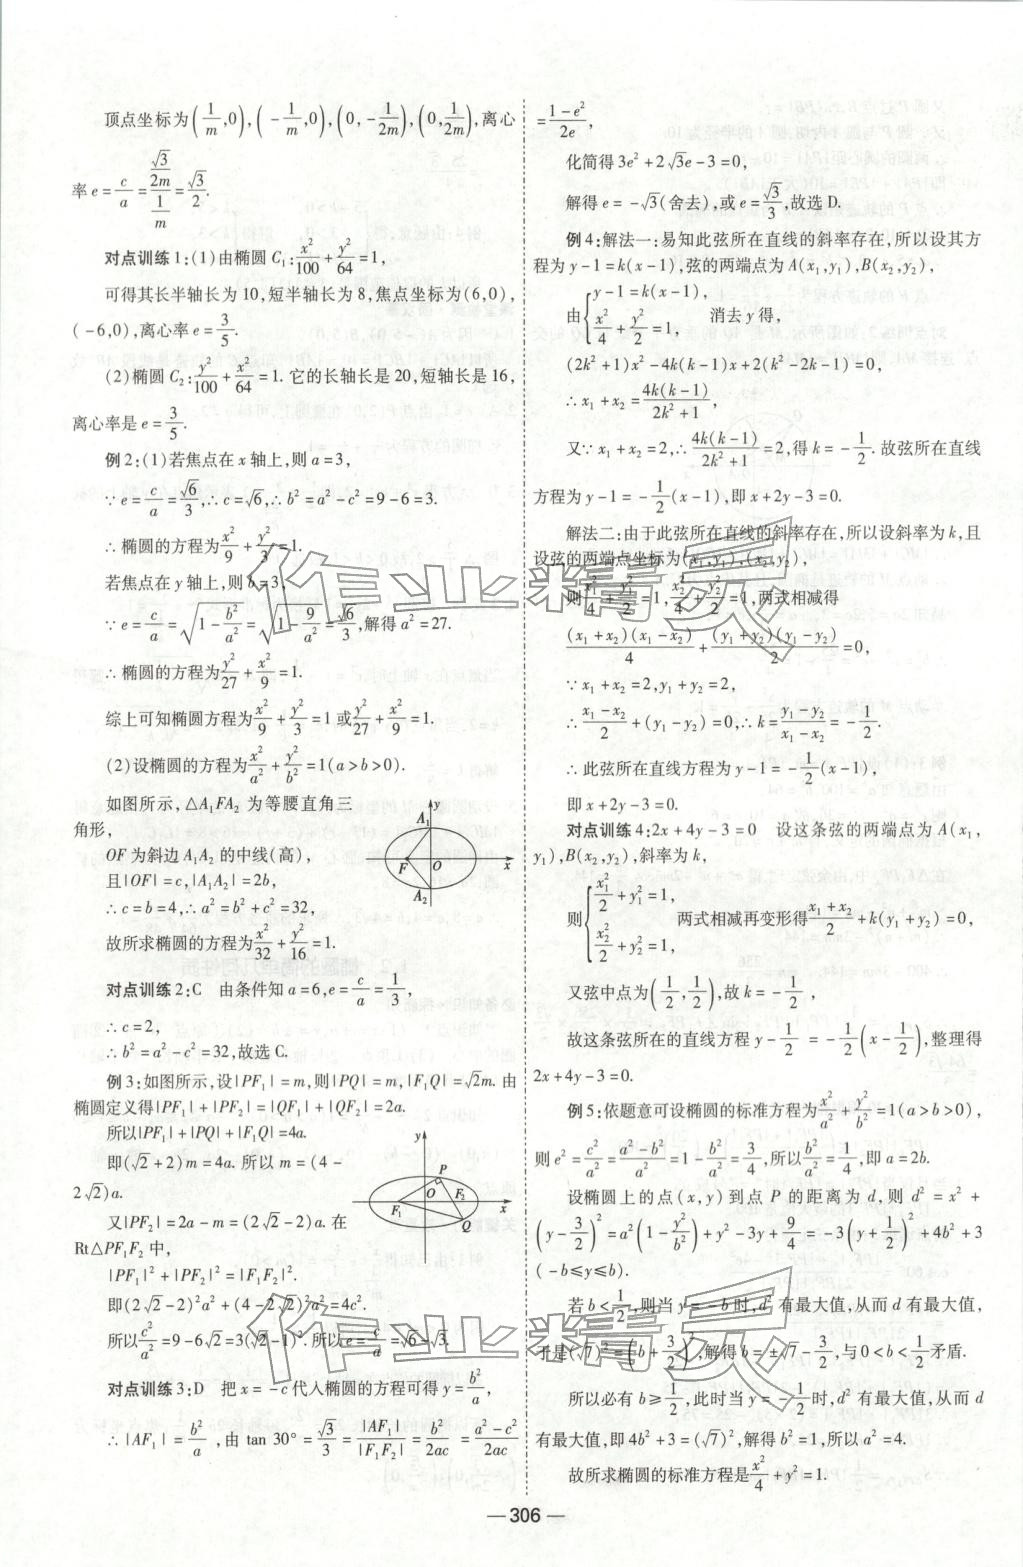 顶点坐标为(1/m,0),(-1/m,0),(0,-1/2m),(0,1/2m),离心
率 e=c/a=(√3/2m)/(1/m)=√3/2.
对点训练1:(1)由椭圆 C₁:x²/100+y²/64=1,
可得其长半轴长为10,短半轴长为8,焦点坐标为(6,0),
(-6,0),离心率 e=3/5.
(2)椭圆 C₂:y²/100+x²/64=1.它的长轴长是20,短轴长是16,
离心率是 e=3/5.
例2:(1)若焦点在x轴上,则a=3,
∵e=c/a=√6/3,∴c=√6,∴b²=a²-c²=9-6=3.
∴椭圆的方程为x²/9+y²/3=1.
若焦点在y轴上,则b=3,
∵e=c/a=√(1-b²/a²)=√(1-9/a²)=√6/3,解得a²=27.
∴椭圆的方程为y²/27+x²/9=1.
综上可知椭圆方程为x²/9+y²/3=1或y²/27+x²/9=1.
(2)设椭圆的方程为x²/a²+y²/b²=1(a>b>0).
如图所示,△A₁FA₂为等腰直角三
角形,
OF为斜边A₁A₂的中线(高),
且|OF|=c,|A₁A₂|=2b,
∴c=b=4,∴a²=b²+c²=32,
故所求椭圆的方程为x²/32+y²/16=1.
y
A₁
F
O
x
A₂
对点训练2:C 由条件知a=6,e=c/a=1/3,
∴c=2,
∴b²=a²-c²=32,故选C.
例3:如图所示,设|PF₁|=m,则|PQ|=m,|F₁Q|=√2m.由
椭圆定义得|PF₁|+|PF₂|=|QF₁|+|QF₂|=2a.
所以|PF₁|+|PQ|+|F₁Q|=4a.
即(√2+2)m=4a.所以m=(4-
2√2)a.
又|PF₂|=2a-m=(2√2-2)a.在
Rt△PF₁F₂中,
|PF₁|²+|PF₂|²=|F₁F₂|².
即(2√2-2)²a²+(4-2√2)²a²=4c².
所以c²/a²=9-6√2=3(√2-1)².所以e=c/a=√6-√3.
y
P
O
F₂
F₁
x
Q
对点训练3:D 把x=-c代人椭圆的方程可得y=b²/a,
∴|AF₁|=b²/a,由tan 30°=√3/3=|AF₁|/|F₁F₂|=b²/2ac=(a²-c²)/2ac
=(1-e²)/2e,
化简得3e²+2√3e-3=0,
解得e=-√3(舍去),或e=√3/3,故选D.
例4:解法一:易知此弦所在直线的斜率存在,所以设其方
程为y-1=k(x-1),弦的两端点为A(x₁,y₁),B(x₂,y₂),
由{y-1=k(x-1), x²/4+y²/2=1, 消去y得,
(2k²+1)x²-4k(k-1)x+2(k²-2k-1)=0,
∴x₁+x₂=4k(k-1)/(2k²+1),
又∵x₁+x₂=2,∴4k(k-1)/(2k²+1)=2,得k=-1/2.故弦所在直线
方程为y-1=-1/2(x-1),即x+2y-3=0.
解法二:由于此弦所在直线的斜率存在,所以设斜率为k,且
设弦的两端点坐标为(x₁,y₁),(x₂,y₂),
则x₁²/4+y₁²/2=1,x₂²/4+y₂²/2=1,两式相减得
(x₁+x₂)(x₁-x₂)/4+(y₁+y₂)(y₁-y₂)/2=0,
∵x₁+x₂=2,y₁+y₂=2,
∴(x₁-x₂)/2+(y₁-y₂)=0,∴k=(y₁-y₂)/(x₁-x₂)=-1/2.
∴此弦所在直线方程为y-1=-1/2(x-1),
即x+2y-3=0.
对点训练4:2x+4y-3=0 设这条弦的两端点为A(x₁,
y₁),B(x₂,y₂),斜率为k,
则{x₁²/2+y₁²=1, x₂²/2+y₂²=1, 两式相减再变形得(x₁+x₂)/2+k(y₁+y₂)=0,
又弦中点为(1/2,1/2),故k=-1/2,
故这条弦所在的直线方程y-1/2=-1/2(x-1/2),整理得
2x+4y-3=0.
例5:依题意可设椭圆的标准方程为x²/a²+y²/b²=1(a>b>0),
则e²=c²/a²=(a²-b²)/a²=1-b²/a²=3/4,所以b²/a²=1/4,即a=2b.
设椭圆上的点(x,y)到点P的距离为d,则d²=x²+
(y-3/2)²=a²(1-y²/b²)+y²-3y+9/4=-3(y+1/2)²+4b²+3
(-b≤y≤b).
若b<1/2,则当y=-b时,d²有最大值,从而d有最大值,
于是(√7)²=(b+3/2)²,解得b=±√7-3/2,与0<b<1/2矛盾.
所以必有b≥1/2,此时当y=-1/2时,d²有最大值,从而d
有最大值,即4b²+3=(√7)²,解得b²=1,所以a²=4.
故所求椭圆的标准方程是x²/4+y²=1.
作业精灵
作业精灵
—306—